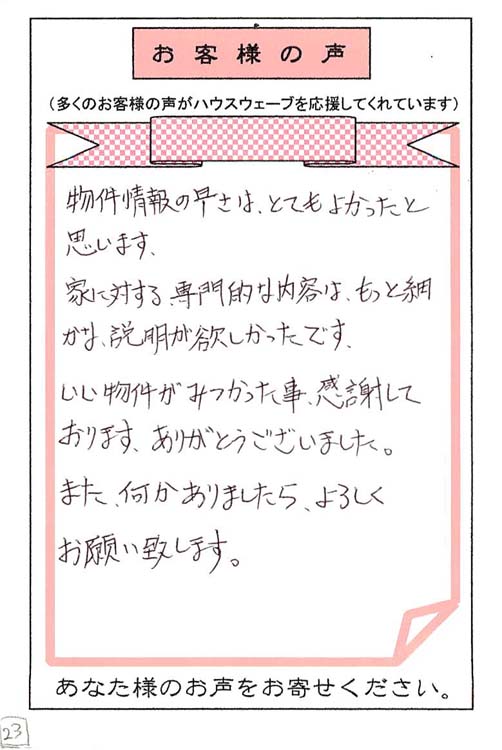 お客様の声
(多くのお客様の声がハウスウェーブを応援してくれています)
物件情報の早さは、とてもよかったと
思います、
家に対する、専門的な内容は、もっと細
かな、説明が欲しかったです、
いい物件がみつかった事、感謝して
おります、ありがとうございました。
また、何かありましたら、よろしく
お願い致します。
あなた様のお声をお寄せください。
23